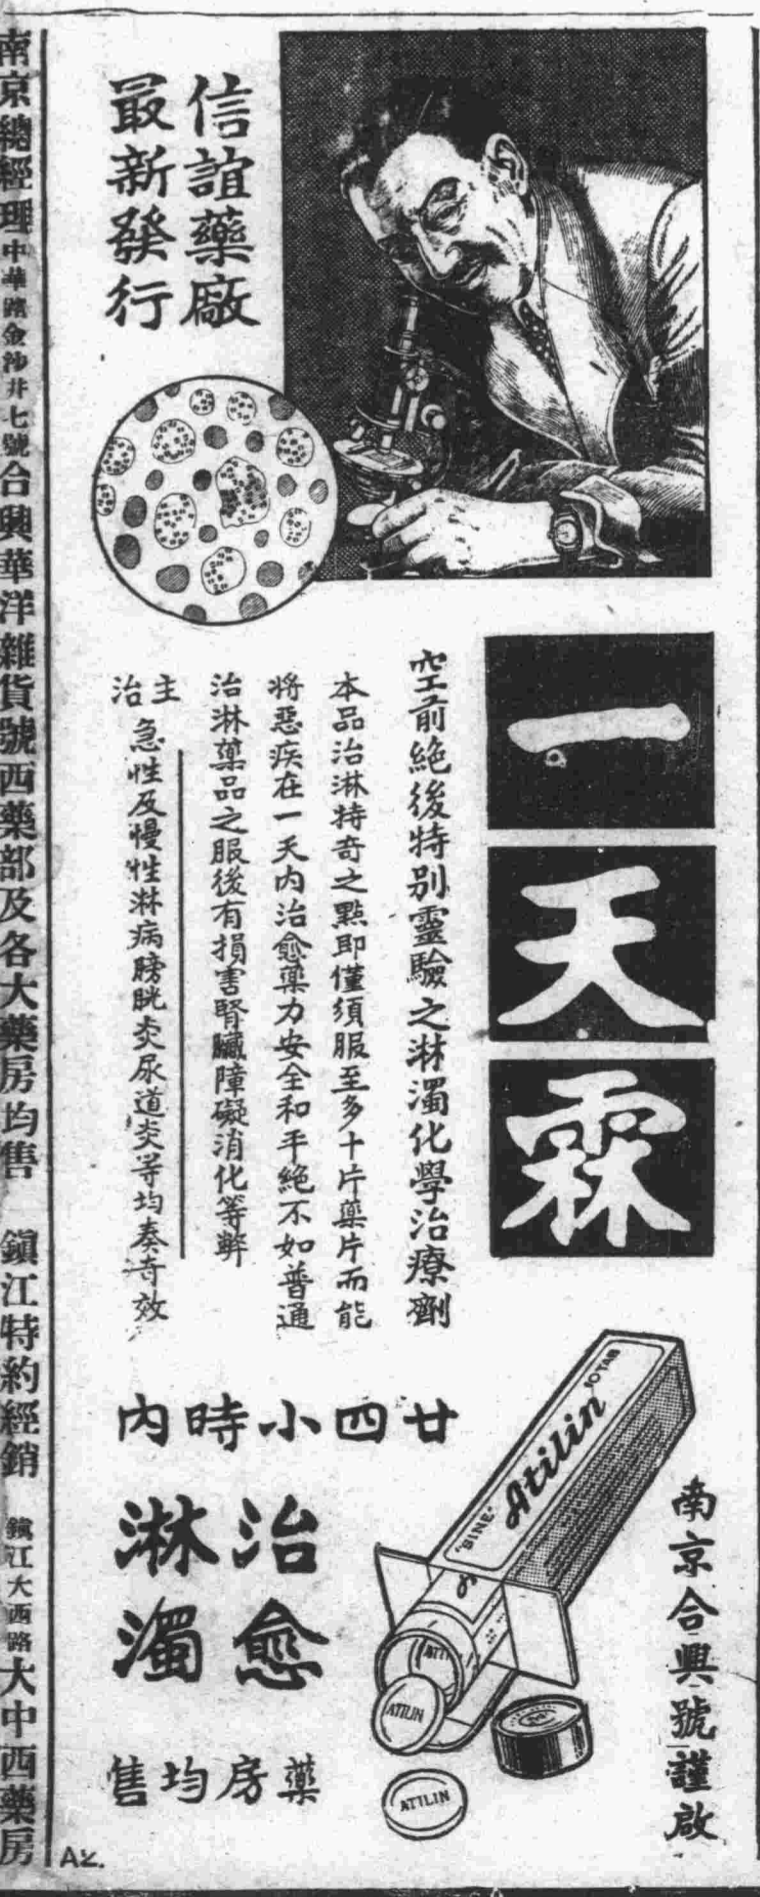 信誼藥廠
最新發行
一天霖
空前絕後特別靈驗之淋濁化學治療劑
本品治淋特奇之點即僅須服至多十片藥片而能
將惡疾在一天內治愈藥力安全和平絕不如普通
治淋藥品之服後有損害腎臟障礙消化等弊
主治
急性及慢性淋病膀胱炎尿道炎等均奏奇效
廿四小時內
治愈
淋濁
藥房均售
"SINE"
Atilin
ATILIN
ATILIN
南京合興號謹啟
南京總經理中華路金沙井七號合興華洋雜貨號西藥部及各大藥房均售
鎮江特約經銷鎮江大西路大中西藥房